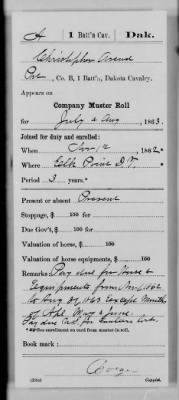 A | 1 Batt'n Cav. | Dak.
Christopher
Pvt, Co. B, 1 Batt'n, Dakota Cavalry.
Appears on
Company Muster Roll
for July & Aug, 1863.
Joined for duty and enrolled:
When 12, 1862.
Where Elk Point D.T.
Period 3 years.*
Present or absent Present
Stoppage, $ 100 for
Due Gov't, $ 100 for
Valuation of horse, $ 100
Valuation of horse equipments, $ 100
Remarks: Pay due for horse &
Equipments from 1862
to Aug 31, 1863 except months
of Apl, May & June.
*See enrollment on card from muster-in roll.
Book mark:
(358c)
Copyist.